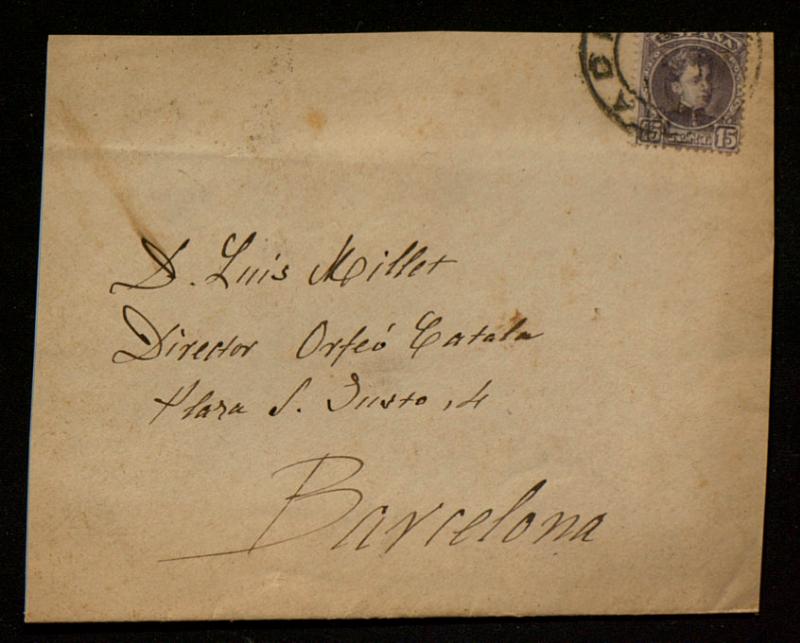 ESPAÑA
15 15
D. Luis Millet
Director Orfeó Catala
Plaza S. Justo, 4
Barcelona